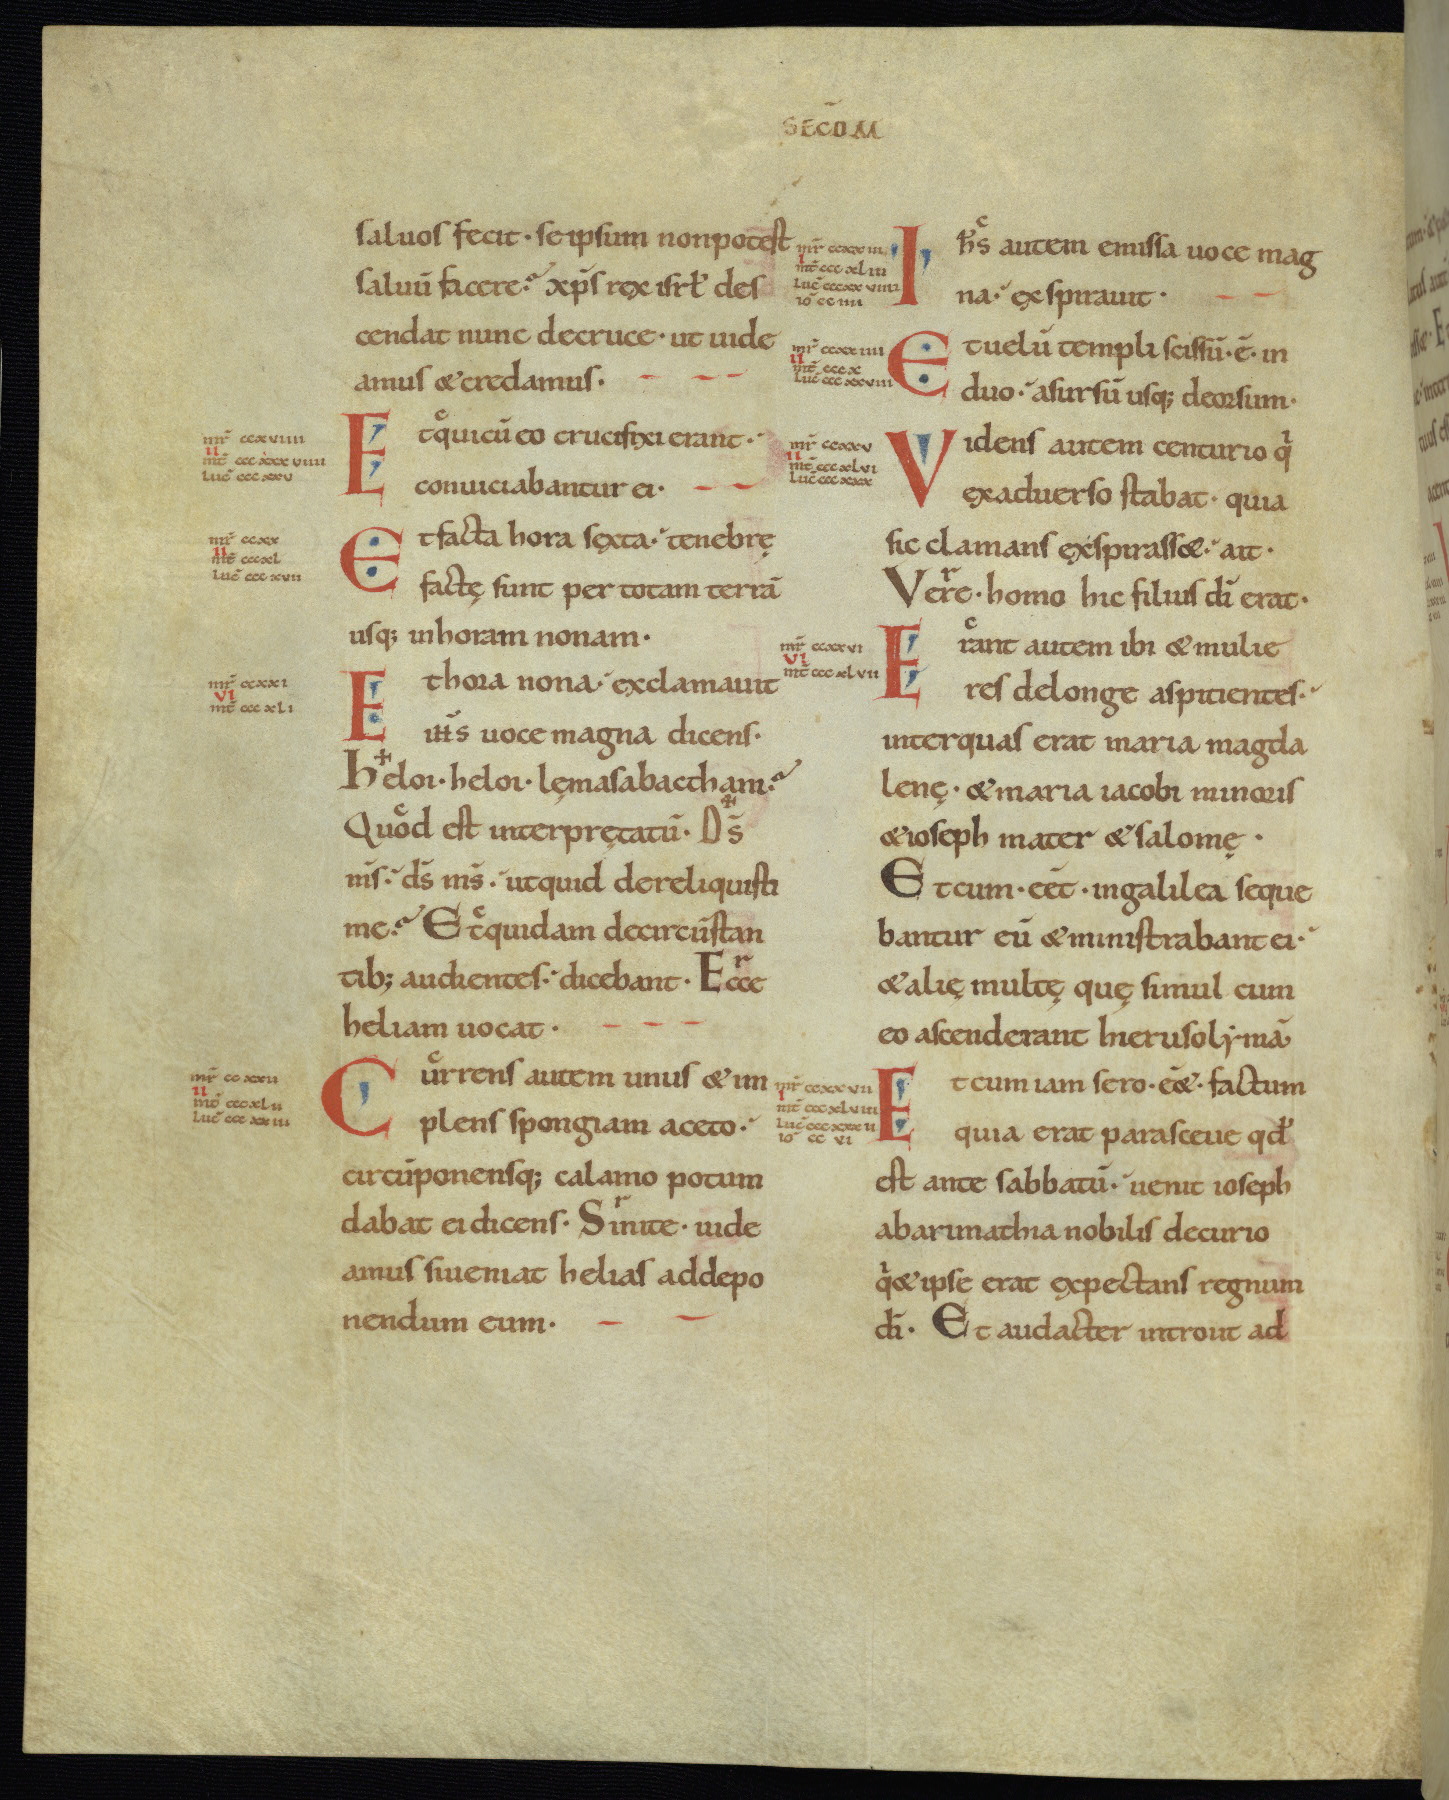 SECD̄M
saluos fecit· se ipsum non potest
saluū facere? xp̄s rex isrł des
cendat nunc de cruce· ut uide
amus & credamus·
mr̄ ccxviiii
ii
mt̄ cccxxxviiii
luc̄ cccxxv
Et qui cū eo crucifixi erant·
conuiciabantur ei·
mr̄ ccxx
ii
mt̄ cccxl
luc̄ cccxvii
Et facta hora sexta· tenebrę
factę sunt per totam terrā
usq; in horam nonam·
mr̄ ccxxi
vi
mt̄ cccxli
Et hora nona· exclamauit
ih̄s uoce magna dicens·
Heloi· heloi· lęmasabacthani?
Quod est interprętatū· Ds̄
ms̄· ds̄ ms̄· utquid dereliquisti
me? Et quidam de circūstan
tib; audientes· dicebant· Ecce
heliam uocat·
mr̄ ccxxii
ii
mt̄ cccxlii
luc̄ cccxxiii
Currens autem unus & im
plens spongiam aceto·
circūponensq; calamo potum
dabat ei dicens· Sinite· uide
amus si ueniat helias ad depo
nendum eum·
mr̄ ccxxiii
i
mt̄ cccxliii
luc̄ cccxxviiii
io cciiii
Ihs̄ autem emissa uoce mag
na· exspirauit·
mr̄ ccxxiiii
ii
mt̄ cccx
luc̄ cccxxviii
Et uelū templi scissū· ē· in
duo· a sursū usq; deorsum·
mr̄ ccxxv
ii
mt̄ cccxlvi
luc̄ cccxxx
Videns autem centurio q
ex aduerso stabat· quia
sic clamans exspirass&· ait·
Vere· homo hic filius dī erat·
mr̄ ccxxvi
vi
mt̄ cccxlvii
Erant autem ibi & mulie
res de longe aspicientes·
inter quas erat maria magda
lenę· & maria iacobi minoris
& ioseph mater & salomę·
Et cum· eēt· in galilea seque
bantur eū & ministrabant ei·
& alię multę quę simul cum
eo ascenderant hierusolymā
mr̄ ccxxvii
i
mt̄ cccxlviii
luc̄ cccxxxii
io ccvi
Et cum iam sero· eē&· factum
quia erat parasceue qđ
est ante sabbatū· uenit ioseph
ab arimathia nobilis decurio
q & ipse erat expectans regnum
dī· Et audacter introiit ad